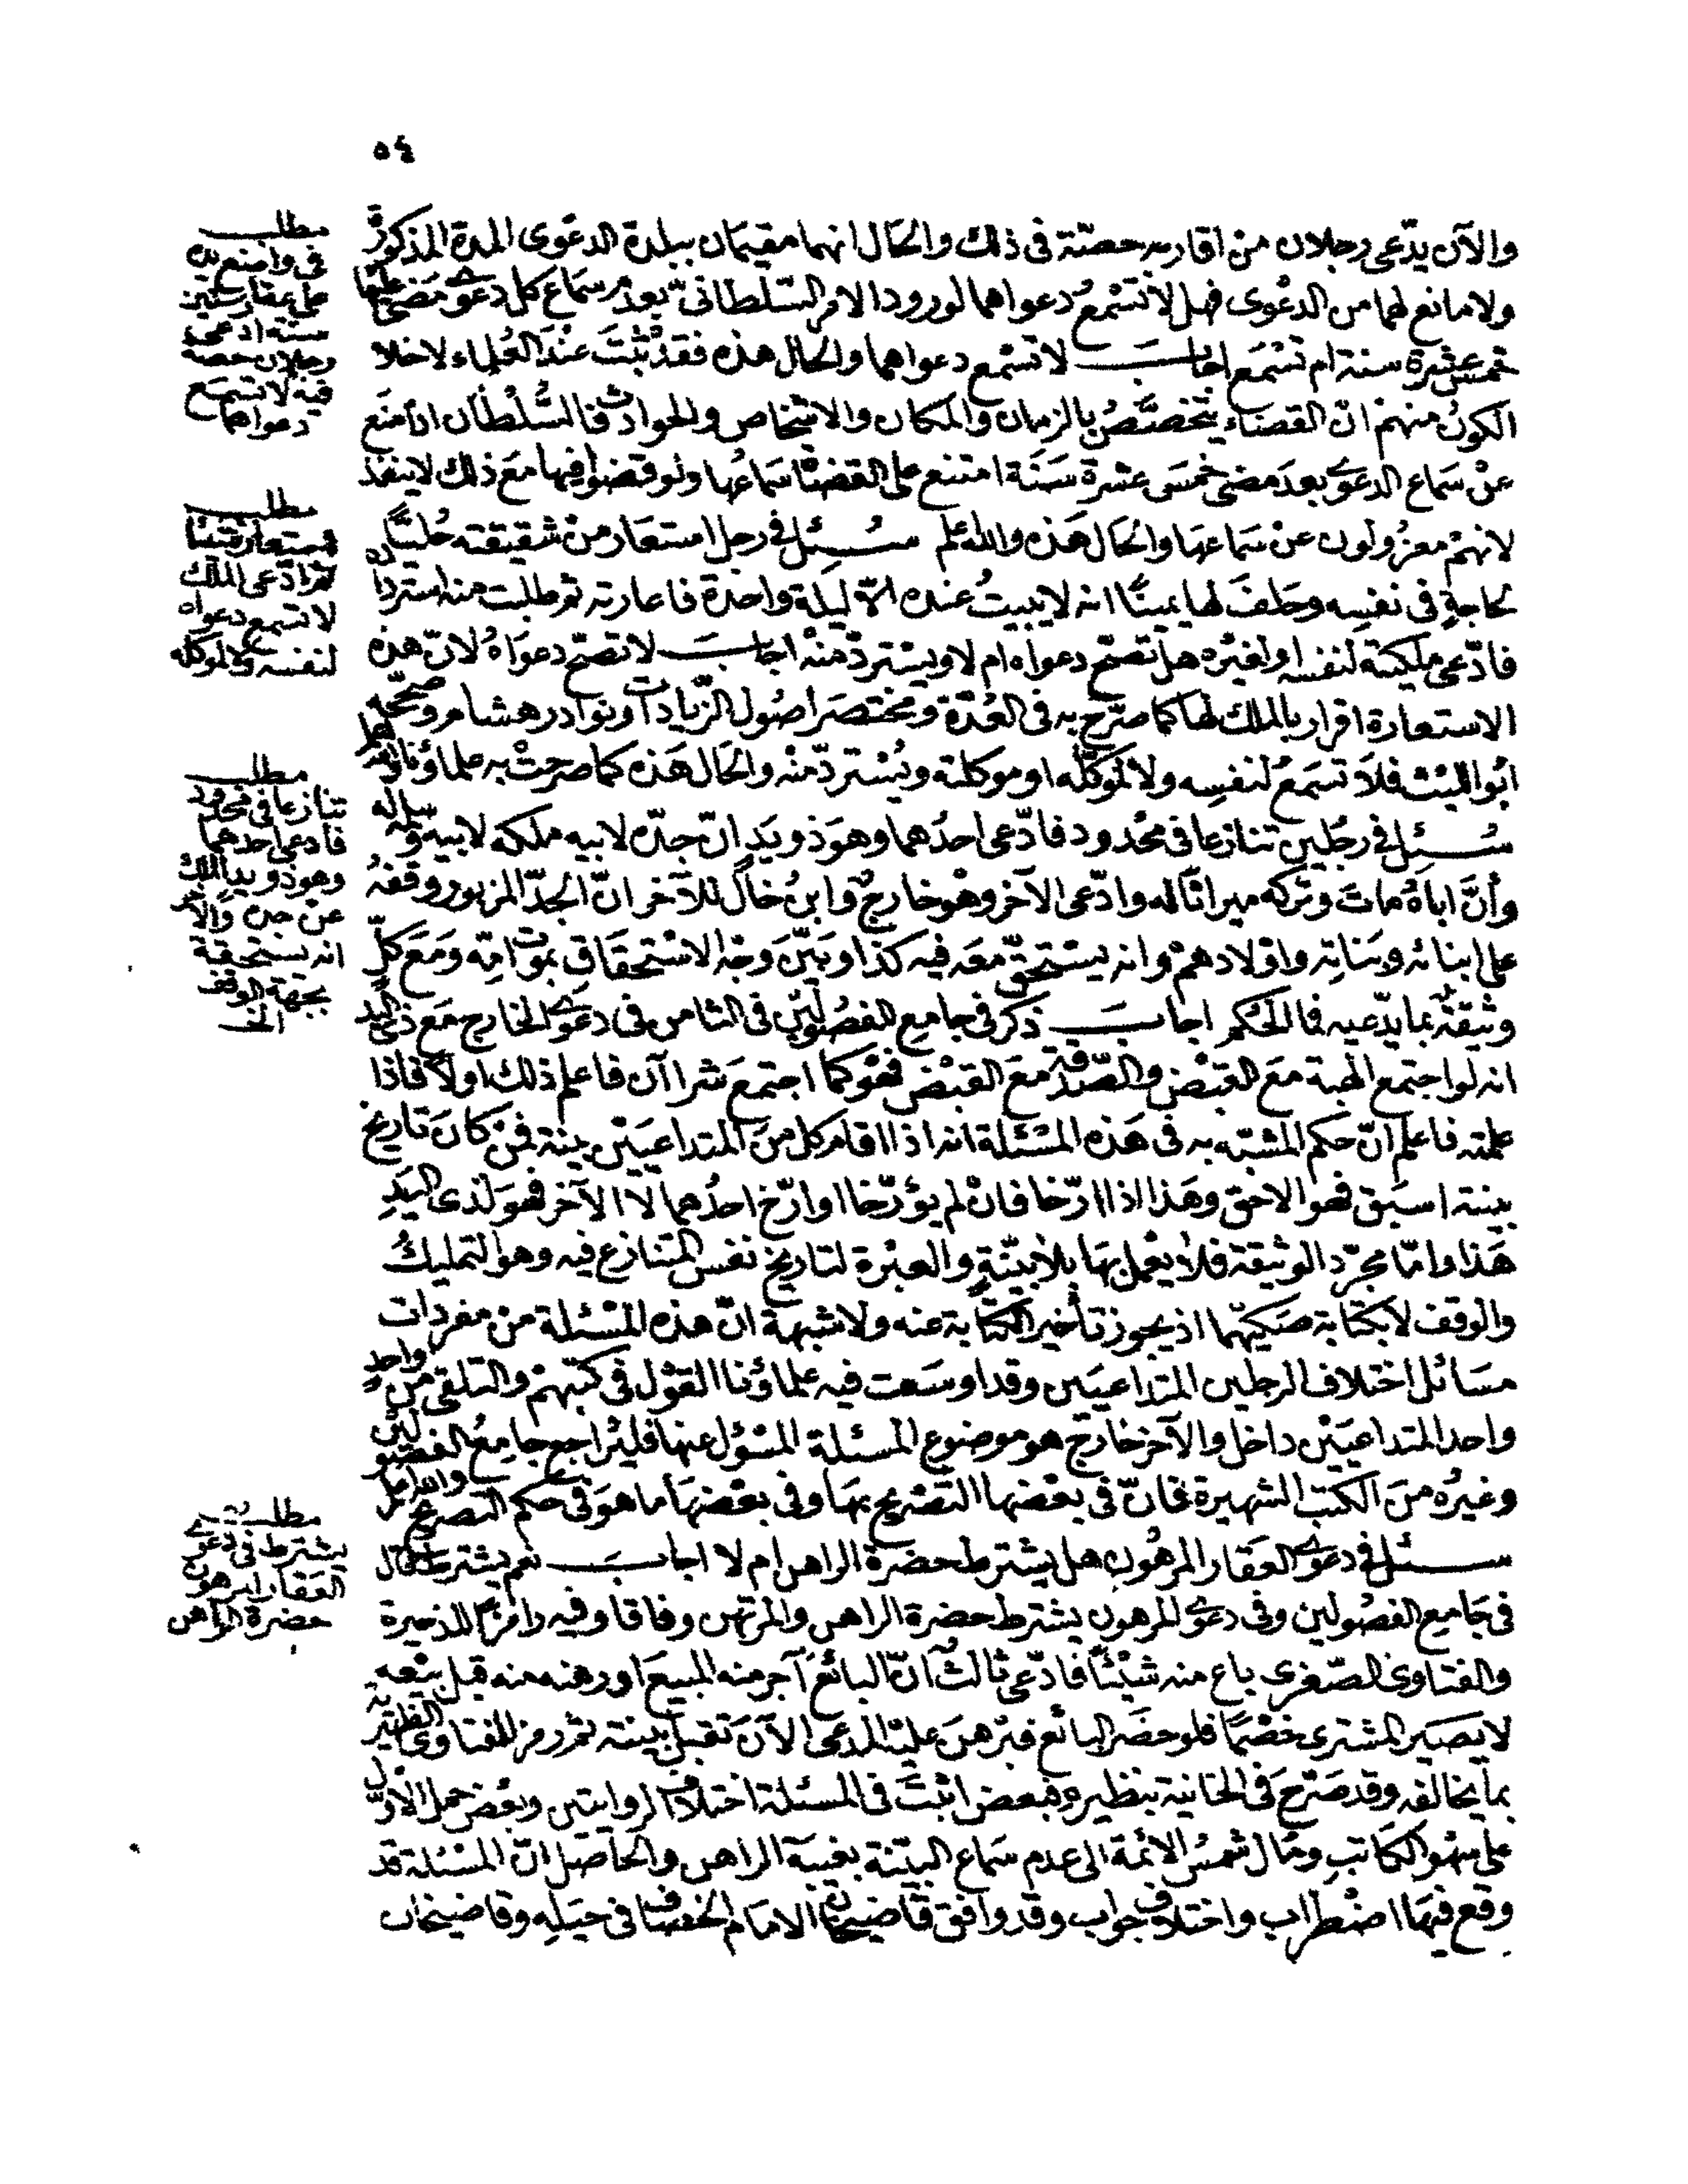 ٥٤
والآن يدّعى رجلان من اقاربه حصّة فى ذلك والحال انهما مقيمان ببلدة الدعوى المدة المذكورة
ولا مانع لهما من الدعوى فهل لا تسمع دعواهما لورود الامر السّلطانىّ بعدم سماع كل دعوى مضى عليها
خمس عشرة سنة ام تسمع اجاب لا تسمع دعواهما والحال هذه فقد ثبت عند العلماء لاخلا
الكون منهم انّ القضاء يتخصّص بالزمان والمكان والاشخاص والحوادث فالسّلطان اذا منع
عن سماع الدعوى بعد مضى خمس عشرة سنة امتنع على القضاة سماعها ولو قضوا فيها مع ذلك لا ينفذ
لانهم معزولون عن سماعها والحال هذه والله اعلم سئل فى رجل استعار من شقيقته حُليّا
لحاجة فى نفسه وحلف لها يمينا انه لا يبيت عنده الاّ ليلة واحدة فاعارته ثم طلبت منه استرداده
فادّعى ملكيته لنفسه او لغيره هل تصح دعواه ام لا ويستردّ منه اجاب لا تصحّ دعواه لانّ هذه
الاستعارة اقرار بالملك لها كما صرّح به فى العدّة ومختصر اصول الزّيادات ونوادر هشام وصحّحه
ابو الليث فلا تسمع لنفسه ولا لموكّله او موكلته ويستردّ منه والحال هذه كما صرحت به علماؤنا والله اعلم
سئل فى رجلين تنازعا فى محدود فادّعى احدهما وهو ذو يد انّ جدّه لابيه ملكه لابيه وسلمه له
وأنّ اباه مات وتركه ميراثا له وادّعى الآخر وهو خارج وابن خال للآخر انّ الجدّ المزبور وقفه
على ابنائه وبناته واولادهم وانه يستحقّ معه فيه كذا وبيّن وجه الاستحقاق بموت امّه ومع كلّ
وثيقة بما يدّعيه فما الحكم اجاب ذكر فى جامع الفصولين فى الثامن فى دعوى الخارج مع ذى اليد
انه لو اجتمع الهبة مع القبض والصّدقة مع القبض فهو كما اجتمع شرا آن فاعلم ذلك اولا فاذا
علمته فاعلم انّ حكم المشبّه به فى هذه المسئلة انه اذا اقام كل من المتداعيين بينة فمن كان تاريخ
بينته اسبق فهو الاحق وهذا اذا ارّخا فان لم يؤرّخا او ارّخ احدهما لا الآخر فهو لذى اليد
هذا وامّا مجرّد الوثيقة فلا يعمل بها بلا بيّنة والعبرة لتاريخ نفس المتنازع فيه وهو التمليك
والوقف لا بكتابة صكيّهما اذ يجوز تأخير الكتابة عنه ولا شبهة انّ هذه المسئلة من مفردات
مسائل اختلاف الرجلين المتداعيين وقد اوسعت فيه علماؤنا القول فى كتبهم والتلقى من واحد
واحد المتداعيين داخل والآخر خارج هو موضوع المسئلة المسؤل عنها فليراجع جامع الفصولين
وغيره من الكتب الشهيرة فانّ فى بعضها التصريح بها وفى بعضها ما هو فى حكم التصريح والله اعلم
سئل فى دعوى العقار المرهون هل يشترط حضرة الراهن ام لا اجاب نعم يشترط قال
فى جامع الفصولين وفى دعوى المرهون يشترط حضرة الراهن والمرتهن وفاقا وفيه رامزا للذخيرة
والفتاوى الصّغرى باع منه شيئا فادّعى ثالث انّ البائع آجر منه المبيع او رهنه منه قبل بيعه
لا يصير المشترى خصما فلو حضر البائع فبرهن عليه المدعى الآن تقبل بينته ثم رمز للفتاوى الظهيرية
بما يخالفه وقد صرّح فى الخانية بنظيره فبعض اثبت فى المسئلة اختلاف الروايتين وبعض حمل الاوّل
على سهو الكاتب ومال شمس الائمة الى عدم سماع البيّنة بغيبة الراهن والحاصل انّ المسئلة قد
وقع فيها اضطراب واختلاف جواب وقد وافق قاضيخان الامام الخصاف فى حيله وقاضيخان
مطلب
فى واضع يده
على عقار ستين
سنة ادعى
رجلان حصة
فيه لا تسمع
دعواهما
مطلب
استعار شيئا
ثم ادّعى الملك
لا تسمع دعواه
لنفسه ولا لموكله
مطلب
تنازعا فى محدود
فادعى احدهما
وهو ذو يد الملك
عن جده والآخر
انه يستحقه
بجهة الوقف
الخ
مطلب
يشترط فى دعوى
العقار المرهون
حضرة الراهن